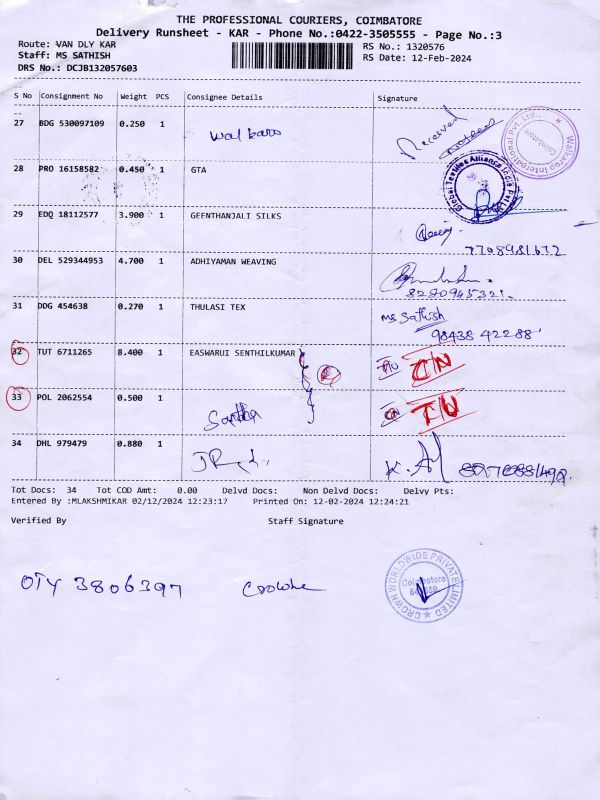 THE PROFESSIONAL COURIERS, COIMBATORE
Delivery Runsheet - KAR - Phone No.:0422-3505555 - Page No.:3
Route: VAN DLY KAR RS No.: 1320576
Staff: MS SATHISH RS Date: 12-Feb-2024
DRS No.: DCJB132057603
S No Consignment No Weight PCS Consignee Details Signature
27 BDG 530097109 0.250 1 Walkaroo Received
Walkaroo International Pvt. Ltd., Coimbatore
28 PRO 16158582 0.450 1 GTA
Global Textiles Alliance India Pvt Ltd
29 EDQ 18112577 3.900 1 GEENTHANJALI SILKS
7708981672
30 DEL 529344953 4.700 1 ADHIYAMAN WEAVING
8280945321
31 DDG 454638 0.270 1 THULASI TEX ms Sathish
98438 42288
32 TUT 6711265 8.400 1 EASWARUI SENTHILKUMAR
33 POL 2062554 0.500 1
34 DHL 979479 0.880 1
Tot Docs: 34 Tot COD Amt: 0.00 Delvd Docs: Non Delvd Docs: Delvy Pts:
Entered By :MLAKSHMIKAR 02/12/2024 12:23:17 Printed On: 12-02-2024 12:24:21
Verified By Staff Signature
OTY 3806397
CROWN WORLDWIDE PRIVATE LIMITED
Coimbatore